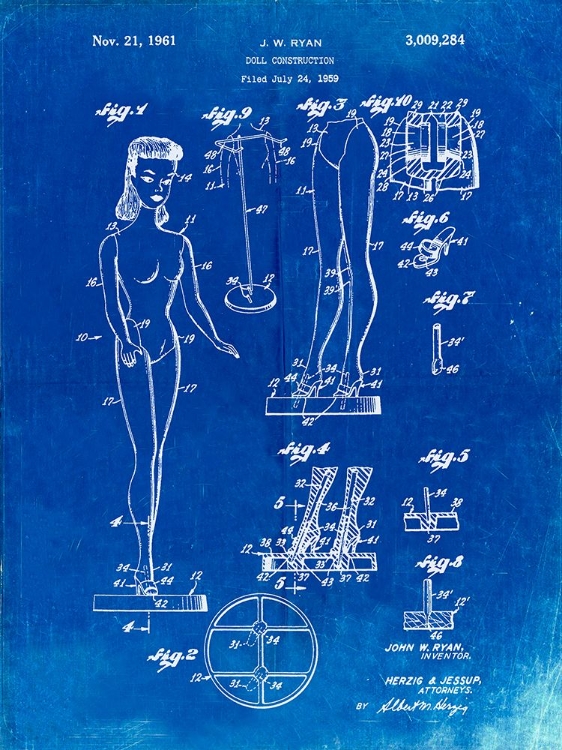 Nov. 21, 1961
J. W. RYAN
3,009,284
DOLL CONSTRUCTION
Filed July 24, 1959
Fig. 1
Fig. 9
Fig. 3
Fig. 10
14
13
11
16
10
19
19
17
17
4
34
41
44
42
12
4
13
48
48
16
11
47
34
12
19
19
13
11
17
17
39
39
31
34
44
31
41
12
42
29
21
22
29
19
19
18
18
27
27
23
23
24
24
28
17
13
26
17
Fig. 6
44
41
42
43
Fig. 7
34'
46
Fig. 4
5
32
36
32
44
31
38
33
41
31
41
12
42
37
43
37
42
5
Fig. 5
12
34
38
37
Fig. 8
34'
12'
46
Fig. 2
12
31
34
31
34
JOHN W. RYAN,
INVENTOR.
HERZIG & JESSUP,
ATTORNEYS.
BY Albert M. Herzig